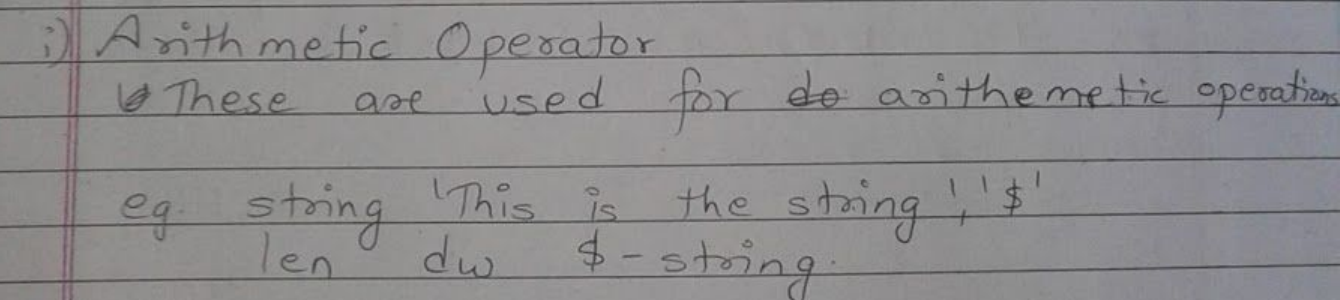 i) Arithmetic Operator
These are used for do arithemetic operations
eg. string 'This is the string', '$'
len dw $-string.